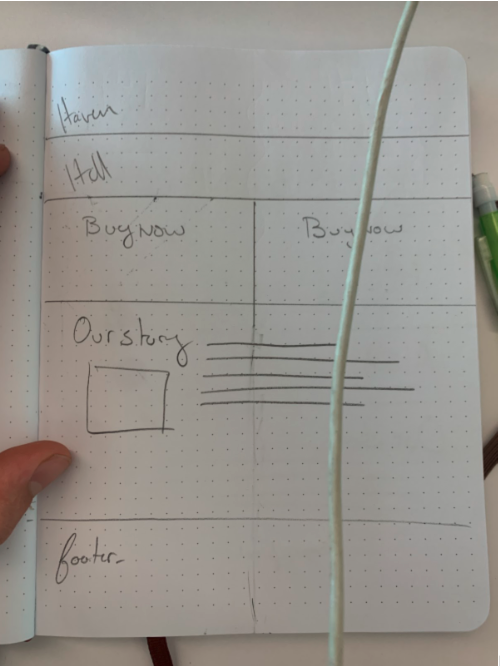 Haven
Buy Now Buy Now
Our story
footer